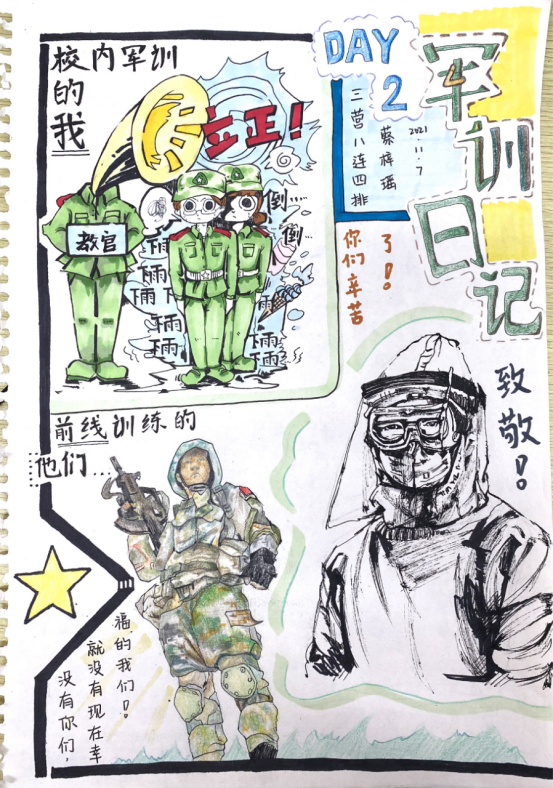 军训日记
DAY
2
三营八连四排
蔡梓瑶
2021.11.7
校内军训
的
我
立正!
教官
倒……
倒…
你们辛苦
了!
致敬!
前线训练的
他们...
没有你们,
就没有现在幸
福的我们!